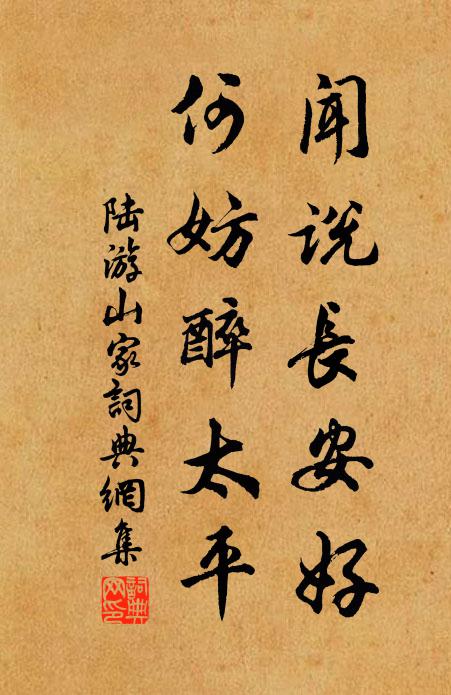 闻说長安好
何妨醉太平
陆游山家詞典網集
詞典网印